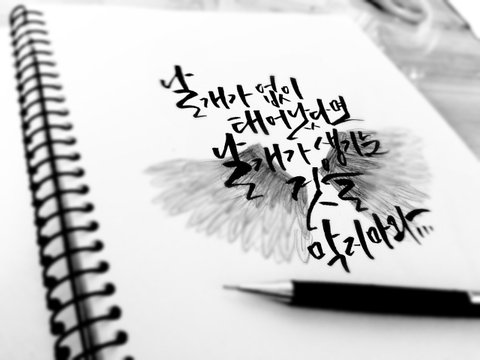 날개가 없이
태어났다면
날개가 생기는
것을
막지마라...